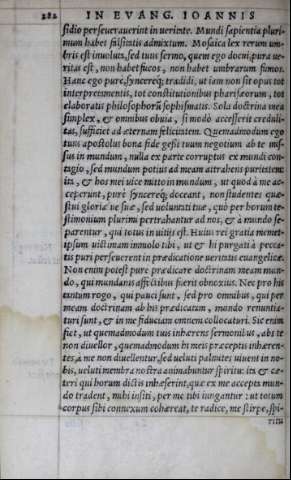 282 IN EVANG. IOANNIS
sidio perseuerauerint in ueritate. Mundi sapientia pluri-
mum habet falsitatis admixtum. Mosaica lex rerum um-
bris est inuoluta, sed tuus sermo, quem ego docui, pura ue-
ritas est, non habet fucos, non habet umbrarum fumos.
Hanc ego pure, syncereq; tradidi, ut iam non sit opus tot
interpretamentis, tot constitutionibus pharisæorum, tot
elaboratis philosophorũ sophismatis. Sola doctrina mea
simplex, & omnibus obuia, si modò accesserit creduli-
tas, sufficiet ad æternam felicitatem. Quemadmodum ego
tuus apostolus bona fide gessi tuum negotium ab te mis-
sus in mundum, nulla ex parte corruptus ex mundi con-
tagio, sed mundum potius ad meam attrahens puritatem:
ita, & hos mei uice mitto in mundum, ut quod à me ac-
ceperunt, purè syncereq; doceant, non studentes quæ-
stui gloriæ ue suæ, sed uoluntati tuæ, quò per horum te-
stimonium plurimi pertrahantur ad nos, & à mundo se-
parentur, qui totus in uitijs est. Huius rei gratia memet-
ipsum uictimam immolo tibi, ut & hi purgati à pecca-
tis puri perseuerent in prædicatione ueritatis euangelicæ.
Non enim potest pure prædicare doctrinam meam mun-
do, qui mundanis affectibus fuerit obnoxius. Nec pro his
tantum rogo, qui pauci sunt, sed pro omnibus, qui per
meam doctrinam ab his prædicatam, mundo renuntia-
turi sunt, & in me fiduciam omnem collocaturi. Sic enim
fiet, ut quemadmodum tuis inhærens sermonibus, abs te
non diuellor, quemadmodum hi meis præceptis inhæren-
tes, à me non diuellentur, sed ueluti palmites uiuent in no-
bis, ueluti membra nostra animabuntur spiritu: ita & cæ-
teri qui horum dictis inhæserint, quæ ex me accepta mun-
do tradent, mihi insiti, per me tibi iungantur: ut totum
corpus sibi connexum cohæreat, te radice, me stirpe, spi-
ritu